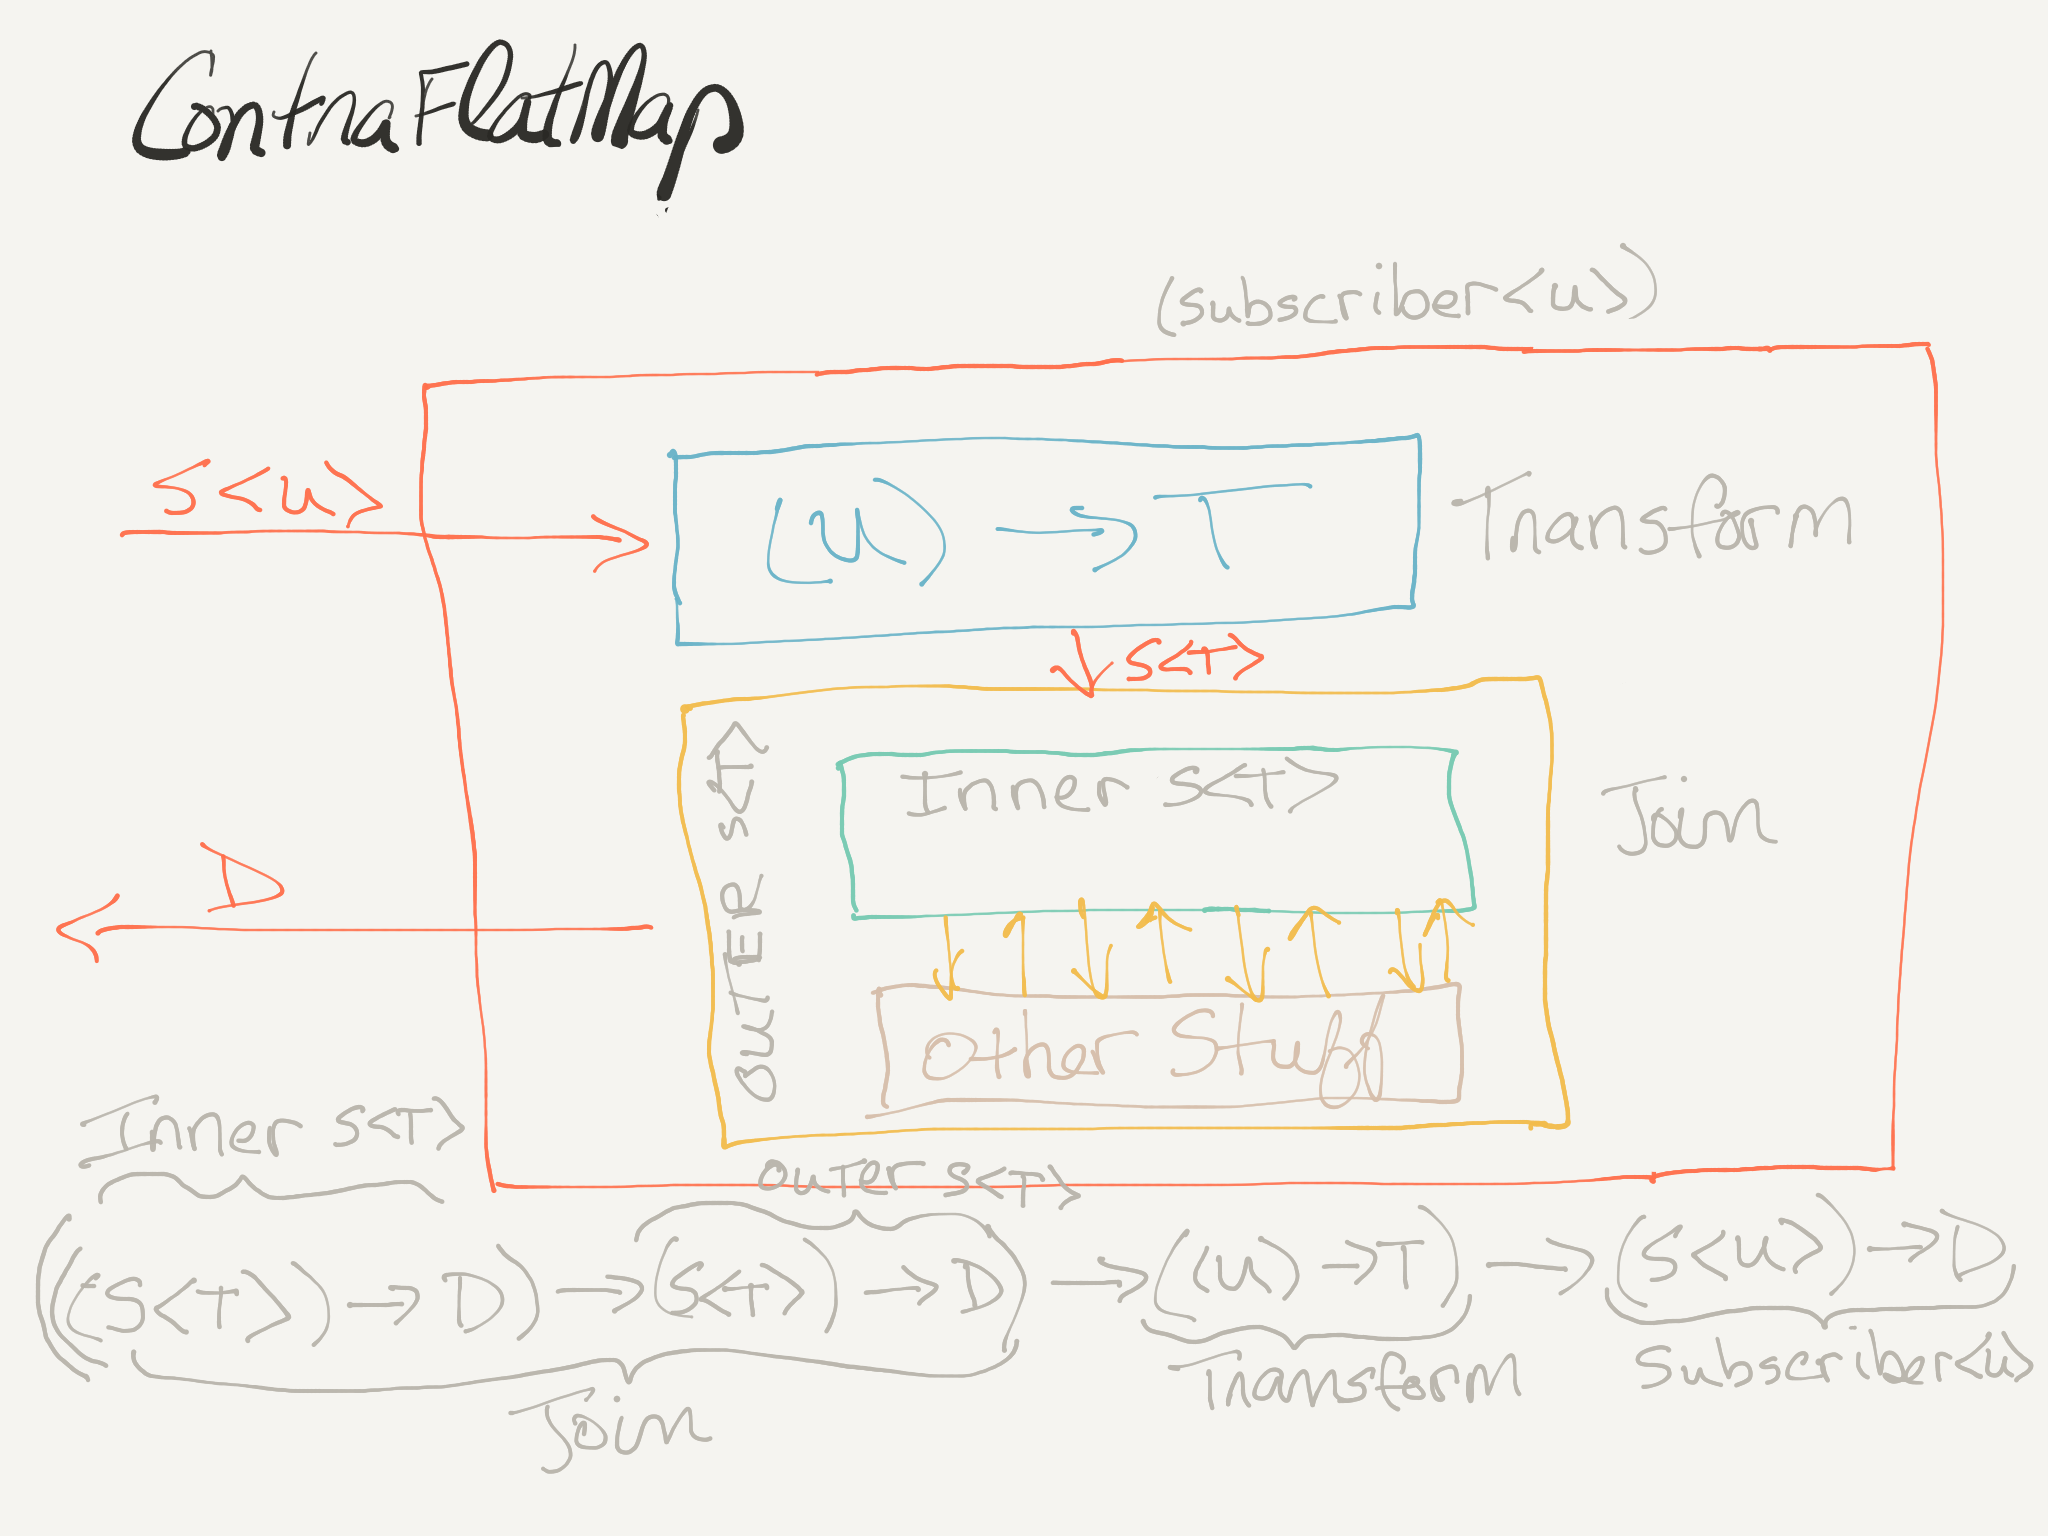 ContraFlatMap
(subscriber<u>)
S<u>
(u) → T
Transform
S<T>
OUTER S<T>
Inner S<T>
Join
D
Other Stuff
Inner S<T>
OUTER S<T>
(((S<T>) → D) → (S<T>) → D) → ((u) → T) → (S<u>) → D
Transform
Subscriber<u>
Join